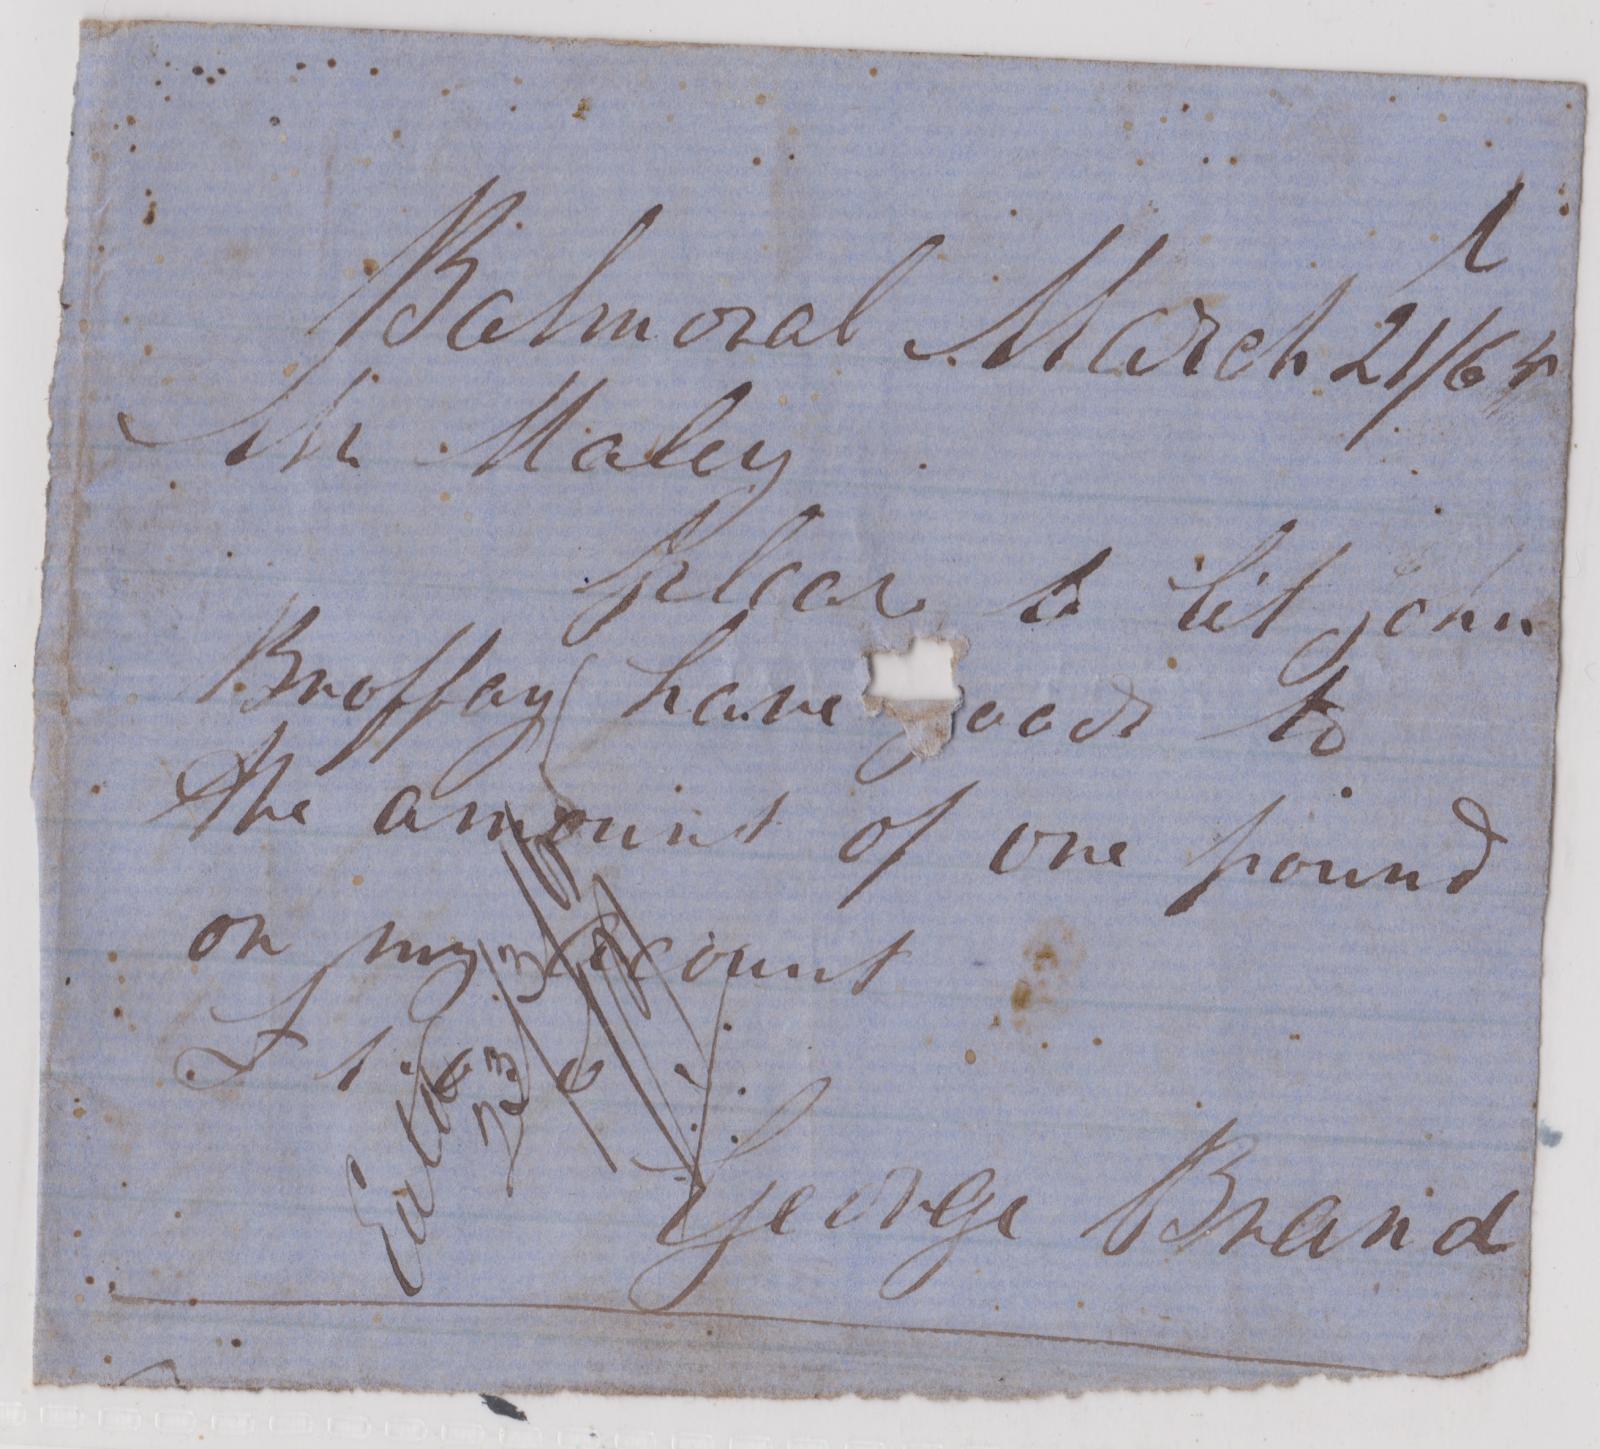 Balmoral March 21/64
Mr Maley
pleas to let John
Broffay have goods to
the amount of one pound
on my account
I
George Brand